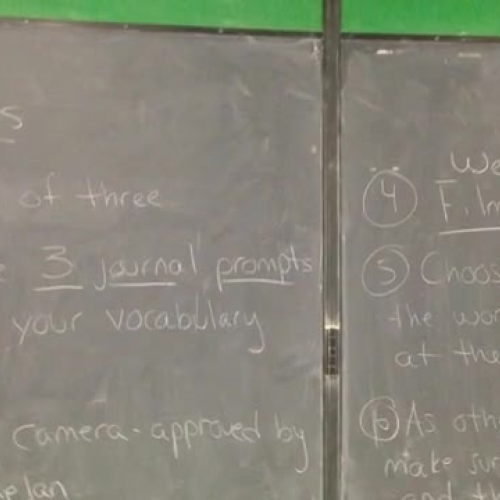 s
of three
3 journal prompts
your vocabulary
camera-approved by
We
4 Film
5 Choos
the wor
at the
6 As othe
make sur